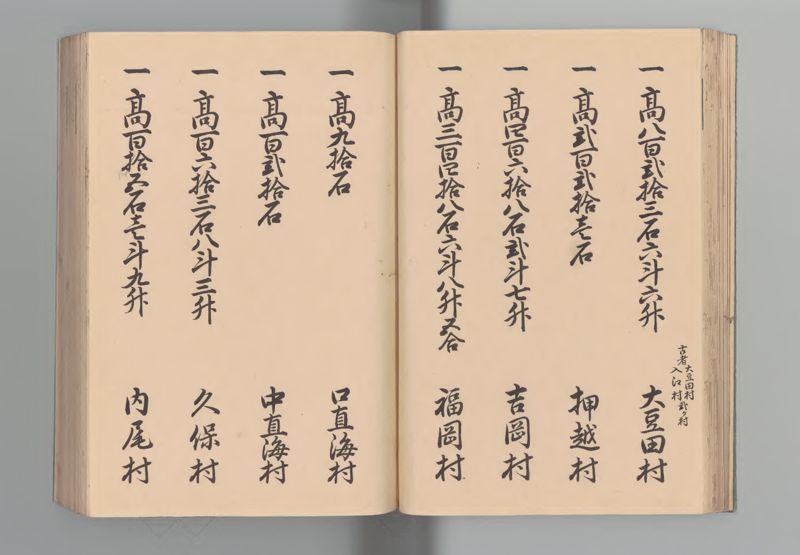 一 高八百弐拾三石六斗六升
古者大豆田村
入江村弐ヶ村
大豆田村
一 高弐百弐拾壱石
押越村
一 高四百六拾八石弐斗七升
吉岡村
一 高三百四拾八石六斗八升五合
福岡村
一 高九拾石
口直海村
一 高百弐拾石
中直海村
一 高百六拾三石八斗三升
久保村
一 高百拾五石壱斗九升
内尾村